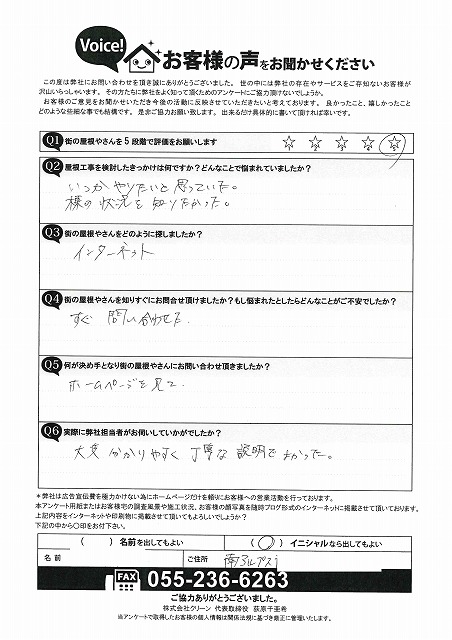 Voice!
お客様の声をお聞かせください
この度は弊社にお問い合わせを頂き誠にありがとうございました。世の中には弊社の存在やサービスをご存知ないお客様が
沢山いらっしゃいます。その方たちに弊社をよく知って頂くためのアンケートにご協力頂けないでしょうか。
お客様のご意見をお聞かせいただき今後の活動に反映させていただきたいと考えております。良かったこと、嬉しかったこと
どのような些細な事でも結構です。是非ご協力お願い致します。出来るだけ具体的に書いて頂ければ幸いです。
Q1 街の屋根やさんを5段階で評価をお願いします ☆ ☆ ☆ ☆ ☆
Q2 屋根工事を検討したきっかけは何ですか？どんなことで悩まれていましたか？
いつかやりたいと思っていた。
棟の状況を知りたかった。
Q3 街の屋根やさんをどのように探しましたか？
インターネット
Q4 街の屋根やさんを知りすぐにお問合せ頂けましたか？もし悩まれたとしたらどんなことがご不安でしたか？
すぐ 問い合わせた.
Q5 何が決め手となり街の屋根やさんにお問い合わせ頂きましたか？
ホームページを見て.
Q6 実際に弊社担当者がお伺いしていかがでしたか？
大変 分かりやすく 丁寧な 説明で よかった。
＊弊社は広告宣伝費を極力かけない為にホームページだけを頼りにお客様への営業活動を行っております。
本アンケート用紙またはお客様宅の調査風景や施工状況、お客様の顔写真を随時ブログ形式のインターネットに掲載させて頂いております。
上記内容をインターネットや印刷物に掲載させて頂いてもよろしいでしょうか？
下記の中から〇印をお付下さい。
（ ）名前を出してもよい （○）イニシャルなら出してもよい
名前 ご住所 南アルプス市
FAX 055-236-6263
ご協力ありがとうございました。
株式会社クリーン 代表取締役 荻原千亜希
当アンケートで取得したお客様の個人情報は関係法規に基づき厳正に管理いたします。